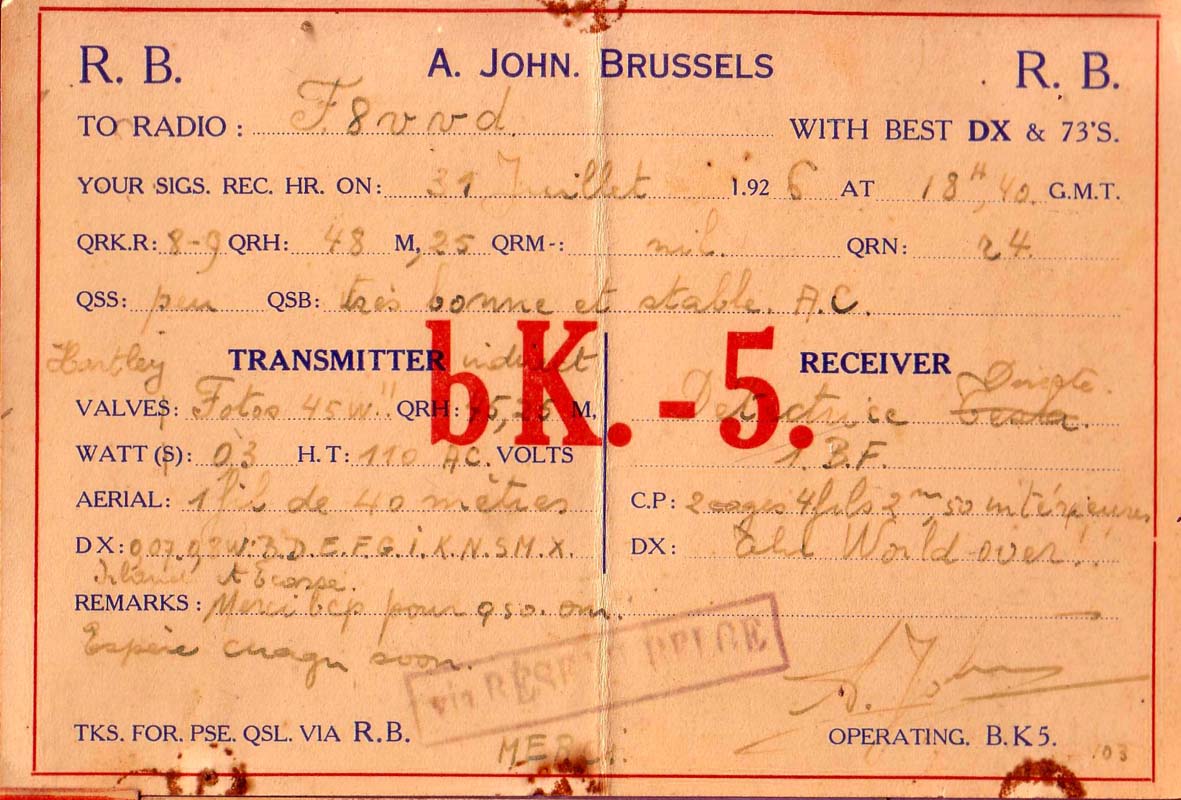 R. B. A. JOHN. BRUSSELS R. B.
TO RADIO : F8vvd. WITH BEST DX & 73'S.
YOUR SIGS. REC. HR. ON: 31 Juillet 1.926 AT 18H,40 G.M.T.
QRK.R: 8-9 QRH: 48 M,25 QRM-: nil. QRN: r4.
QSS: peu QSB: très bonne et stable. A.C.
bK.-5.
Hartley TRANSMITTER indirect
VALVES: Fotos 45W" QRH: M,
WATT (S): 03 H.T: 110 AC. VOLTS
AERIAL: 1 fil de 40 mètres
DX: E.F.G.I.K.N.S.M.X.
Irland et Ecosse.
RECEIVER
Détectrice Directe.
1. B.F.
C.P: 4 fils 2m50 intérieures
DX: World over"..
REMARKS: Merci bcp pour qso. om.
Espère cuagn soon.
via RESEAU BELGE
A. John
TKS. FOR. PSE. QSL. VIA R.B. MERCI. OPERATING. B.K5.
103